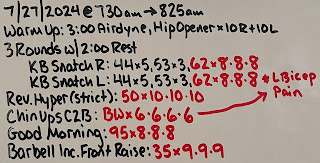 7/27/2024 @ 730am → 825am
Warm Up: 3:00 Airdyne, Hip Opener × 10R + 10L
3 Rounds w/ 2:00 Rest
KB Snatch R: 44×5, 53×3, 62×8·8·8
KB Snatch L: 44×5, 53×3, 62×8·8·8 * L Bicep Pain
Rev. Hyper (strict): 50×10·10·10
Chin Ups C2B: BW×6·6·6·6
Good Morning: 95×8·8·8
Barbell Inc. Front Raise: 35×9·9·9